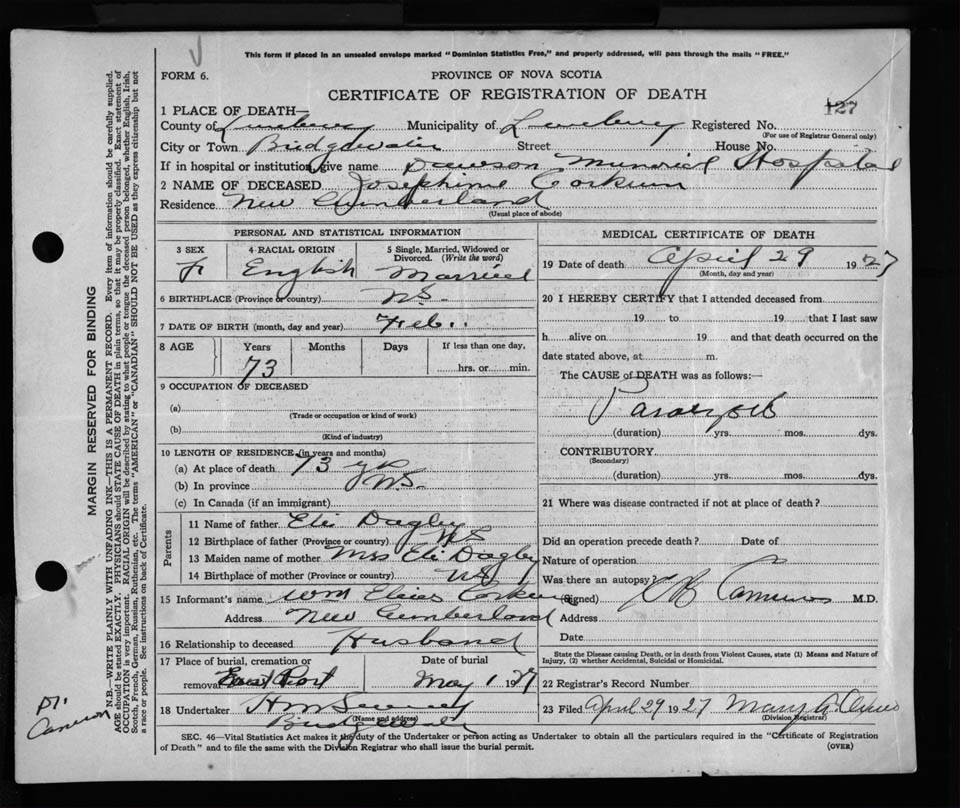 This form if placed in an unsealed envelope marked "Dominion Statistics Free," and properly addressed, will pass through the mails "FREE."
FORM 6.
PROVINCE OF NOVA SCOTIA
CERTIFICATE OF REGISTRATION OF DEATH
127
1 PLACE OF DEATH—
County of Lunenburg Municipality of Lunenburg Registered No.
(For use of Registrar General only)
City or Town Bridgewater Street House No.
If in hospital or institution, give name Dawson Memorial Hospital
2 NAME OF DECEASED Josephine Corkum
Residence New Cumberland
(Usual place of abode)
PERSONAL AND STATISTICAL INFORMATION
3 SEX F
4 RACIAL ORIGIN English
5 Single, Married, Widowed or Divorced. (Write the word) Married
6 BIRTHPLACE (Province or country) N.S.
7 DATE OF BIRTH (month, day and year) Feb.
8 AGE Years Months Days If less than one day,
73 hrs. or min.
9 OCCUPATION OF DECEASED
(a)
(Trade or occupation or kind of work)
(b)
(Kind of industry)
10 LENGTH OF RESIDENCE (in years and months)
(a) At place of death 73 yr
(b) In province N.S.
(c) In Canada (if an immigrant)
Parents
11 Name of father Eli Dagley
12 Birthplace of father (Province or country) NS
13 Maiden name of mother Mrs Eli Dagley
14 Birthplace of mother (Province or country) NS
15 Informant's name Wm Elias Corkum
Address New Cumberland
16 Relationship to deceased Husband
17 Place of burial, cremation or removal Date of burial
East Port May 1 1927
18 Undertaker
(Name and address)
Bridgewater
MEDICAL CERTIFICATE OF DEATH
19 Date of death April 29 1927
(Month, day and year)
20 I HEREBY CERTIFY that I attended deceased from
19 to 19 that I last saw
h alive on 19 and that death occurred on the
date stated above, at m.
The CAUSE of DEATH was as follows:—
Paralysis
(duration) yrs. mos. dys.
CONTRIBUTORY
(Secondary)
(duration) yrs. mos. dys.
21 Where was disease contracted if not at place of death?
Did an operation precede death? Date of
Nature of operation
Was there an autopsy?
(Signed) M.D.
Address
Date
State the Disease causing Death, or in death from Violent Causes, state (1) Means and Nature of
Injury, (2) whether Accidental, Suicidal or Homicidal.
22 Registrar's Record Number
23 Filed April 29 1927 Mary A
(Division Registrar)
SEC. 46—Vital Statistics Act makes it the duty of the Undertaker or person acting as Undertaker to obtain all the particulars required in the "Certificate of Registration
of Death" and to file the same with the Division Registrar who shall issue the burial permit.
(OVER)
MARGIN RESERVED FOR BINDING
N.B.—WRITE PLAINLY WITH UNFADING INK—THIS IS A PERMANENT RECORD. Every item of information should be carefully supplied.
AGE should be stated EXACTLY. PHYSICIANS should STATE CAUSE OF DEATH in plain terms, so that it may be properly classified. Exact statement of
OCCUPATION is very important. RACIAL ORIGIN will be described by stating to what people or tongue the deceased person belonged, whether English, Irish,
Scotch, French, German, Russian, Ruthenian, etc. The terms "AMERICAN" or "CANADIAN" SHOULD NOT BE USED as they express citizenship but not
a race or people. See instructions on back of Certificate.
Dr.
Cameron